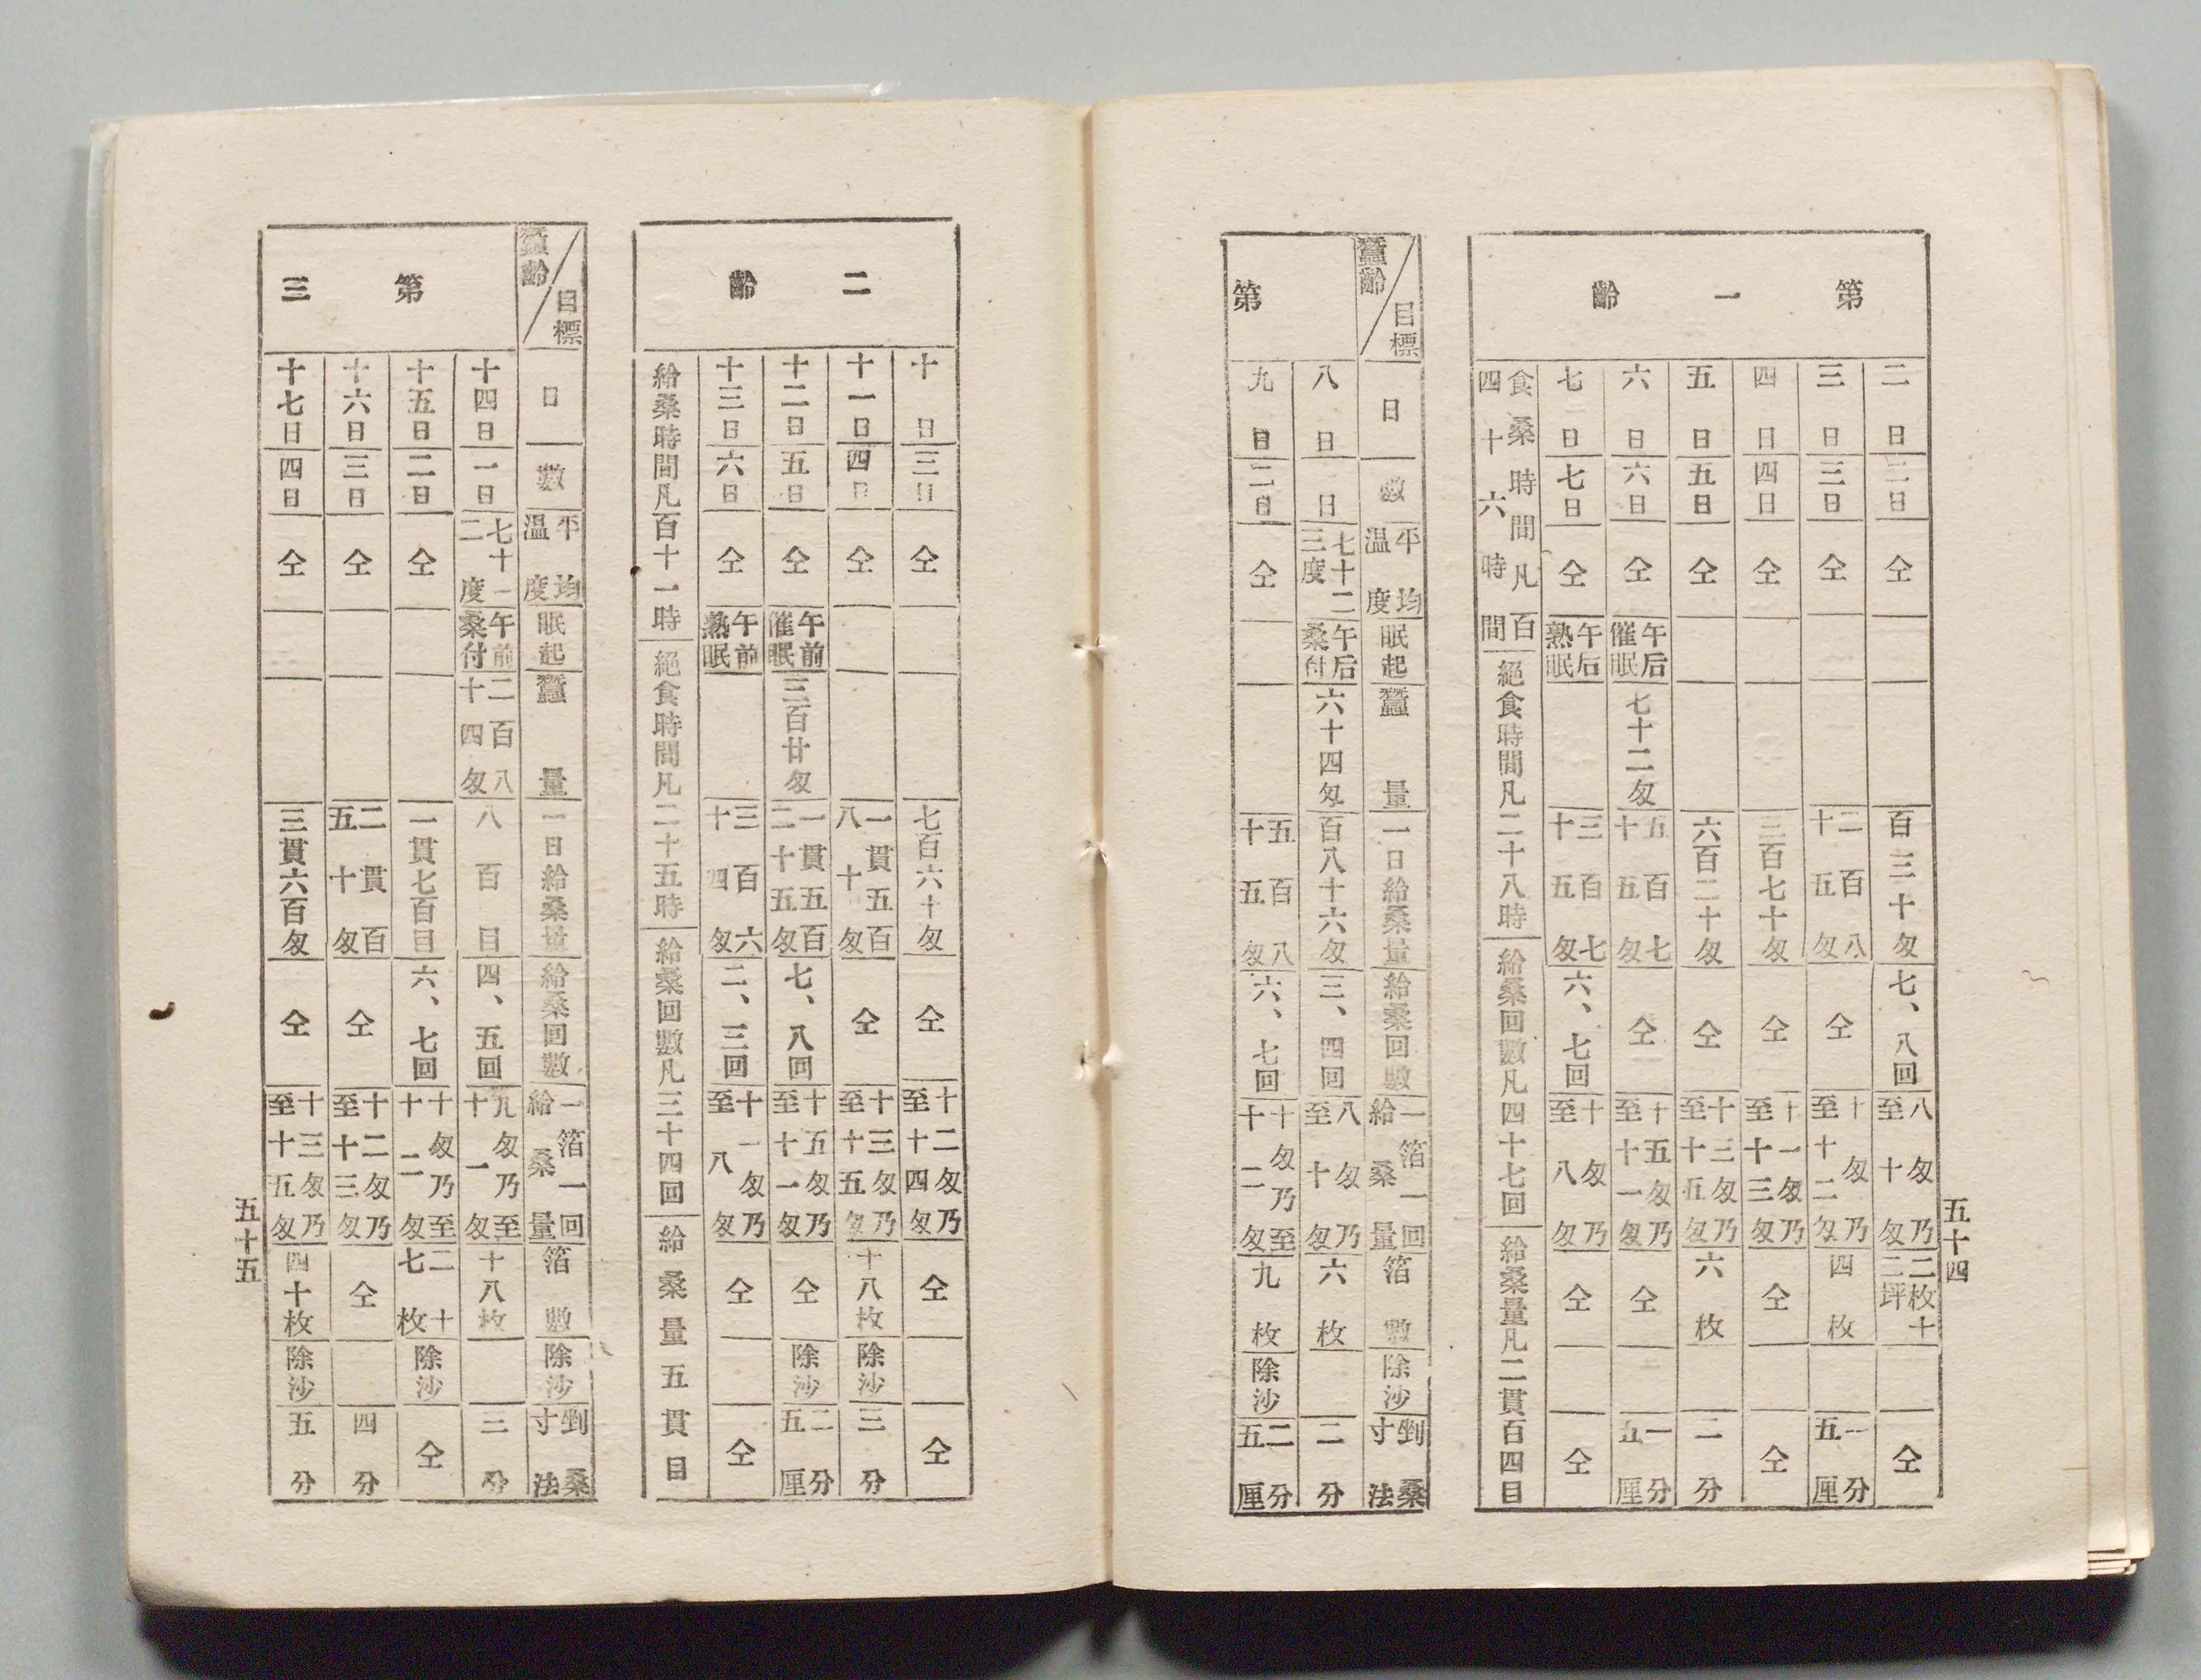 五十四
第一齡
二日 二日 仝 百三十匁 七、八回 八匁乃至十匁 二枚十二坪 仝
三日 三日 仝 二百八十五匁 仝 十匁乃至十二匁 四枚 一分五厘
四日 四日 仝 三百七十匁 仝 十一匁乃至十三匁 仝 仝
五日 五日 仝 六百二十匁 仝 十三匁乃至十五匁 六枚 二分
六日 六日 仝 午后催眠 七十二匁 五百七十五匁 仝 十五匁乃至十一匁 仝 一分五厘
七日 七日 仝 午后熟眠 三百七十五匁 六、七回 十匁乃至八匁 仝 仝
食桑時間凡百四十六時間 絕食時間凡二十八時 給桑回數凡四十七回 給桑量凡二貫百四目
目標 蠶齡 日數 平均温度 眠起 蠶量 一日給桑量 給桑回數 一箔一回給桑量 箔數 除沙 剉桑寸法
第
八日 日 七十二三度 午后桑付 六十四匁 百八十六匁 三、四回 八匁乃至十匁 六枚 二分
九日 二日 仝 五百八十五匁 六、七回 十匁乃至十二匁 九枚 除沙 二分五厘
二齡
十日 三日 仝 七百六十匁 仝 十二匁乃至十四匁 仝 仝
十一日 四日 仝 一貫五百八十匁 仝 十三匁乃至十五匁 十八枚 除沙 三分
十二日 五日 仝 午前催眠 三百廿匁 一貫五百二十五匁 七、八回 十五匁乃至十一匁 仝 除沙 二分五厘
十三日 六日 仝 午前熟眠 三百六十四匁 二、三回 十一匁乃至八匁 仝 仝
給桑時間凡百十一時 絕食時間凡二十五時 給桑回數凡三十四回 給桑量五貫目
目標 蠶齡 日數 平均温度 眠起 蠶量 一日給桑量 給桑回數 一箔一回給桑量 箔數 除沙 剉桑寸法
第三
十四日 一日 七十一二度 午前桑付 二百八十四匁 八百目 四、五回 九匁乃至十一匁 十八枚 三分
十五日 二日 仝 一貫七百目 六、七回 十匁乃至十二匁 二十七枚 除沙 仝
十六日 三日 仝 二貫百五十匁 仝 十二匁乃至十三匁 仝 四分
十七日 四日 仝 三貫六百匁 仝 十三匁乃至十五匁 四十枚 除沙 五分
五十五